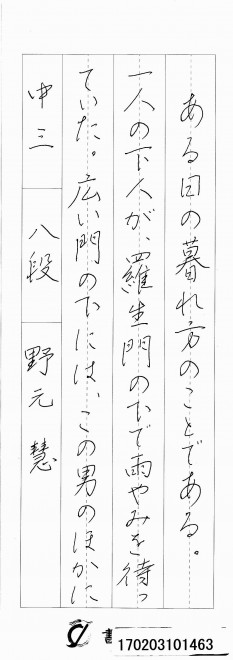 ある日の暮れ方のことである。
一人の下人が、羅生門の下で雨やみを待っ
ていた。広い門の下には、この男のほかに
中三 八段 野元 慧
書
170203101463